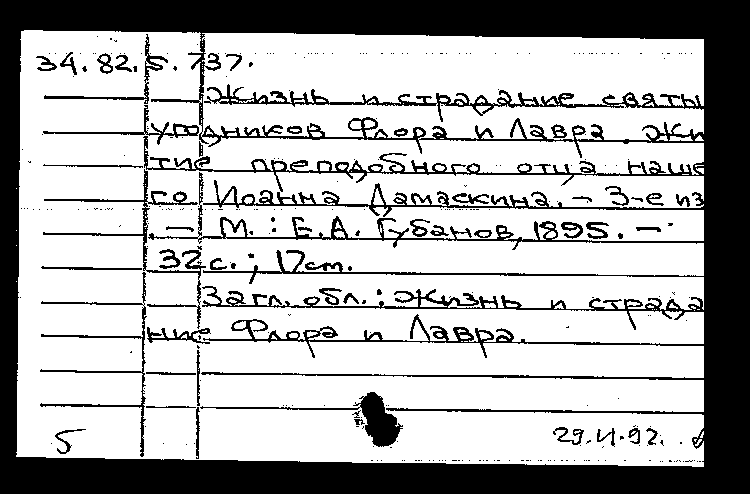 34.82.5.737.
Жизнь и страдание святы
угодников Флора и Лавра. Жи
тие преподобного отца наше
го Иоанна Дамаскина. – 3-е из
. – М. : Е.А. Губанов, 1895. –
32 с. ; 17 cm.
Загл. обл. : Жизнь и страда
ние Флора и Лавра.
5